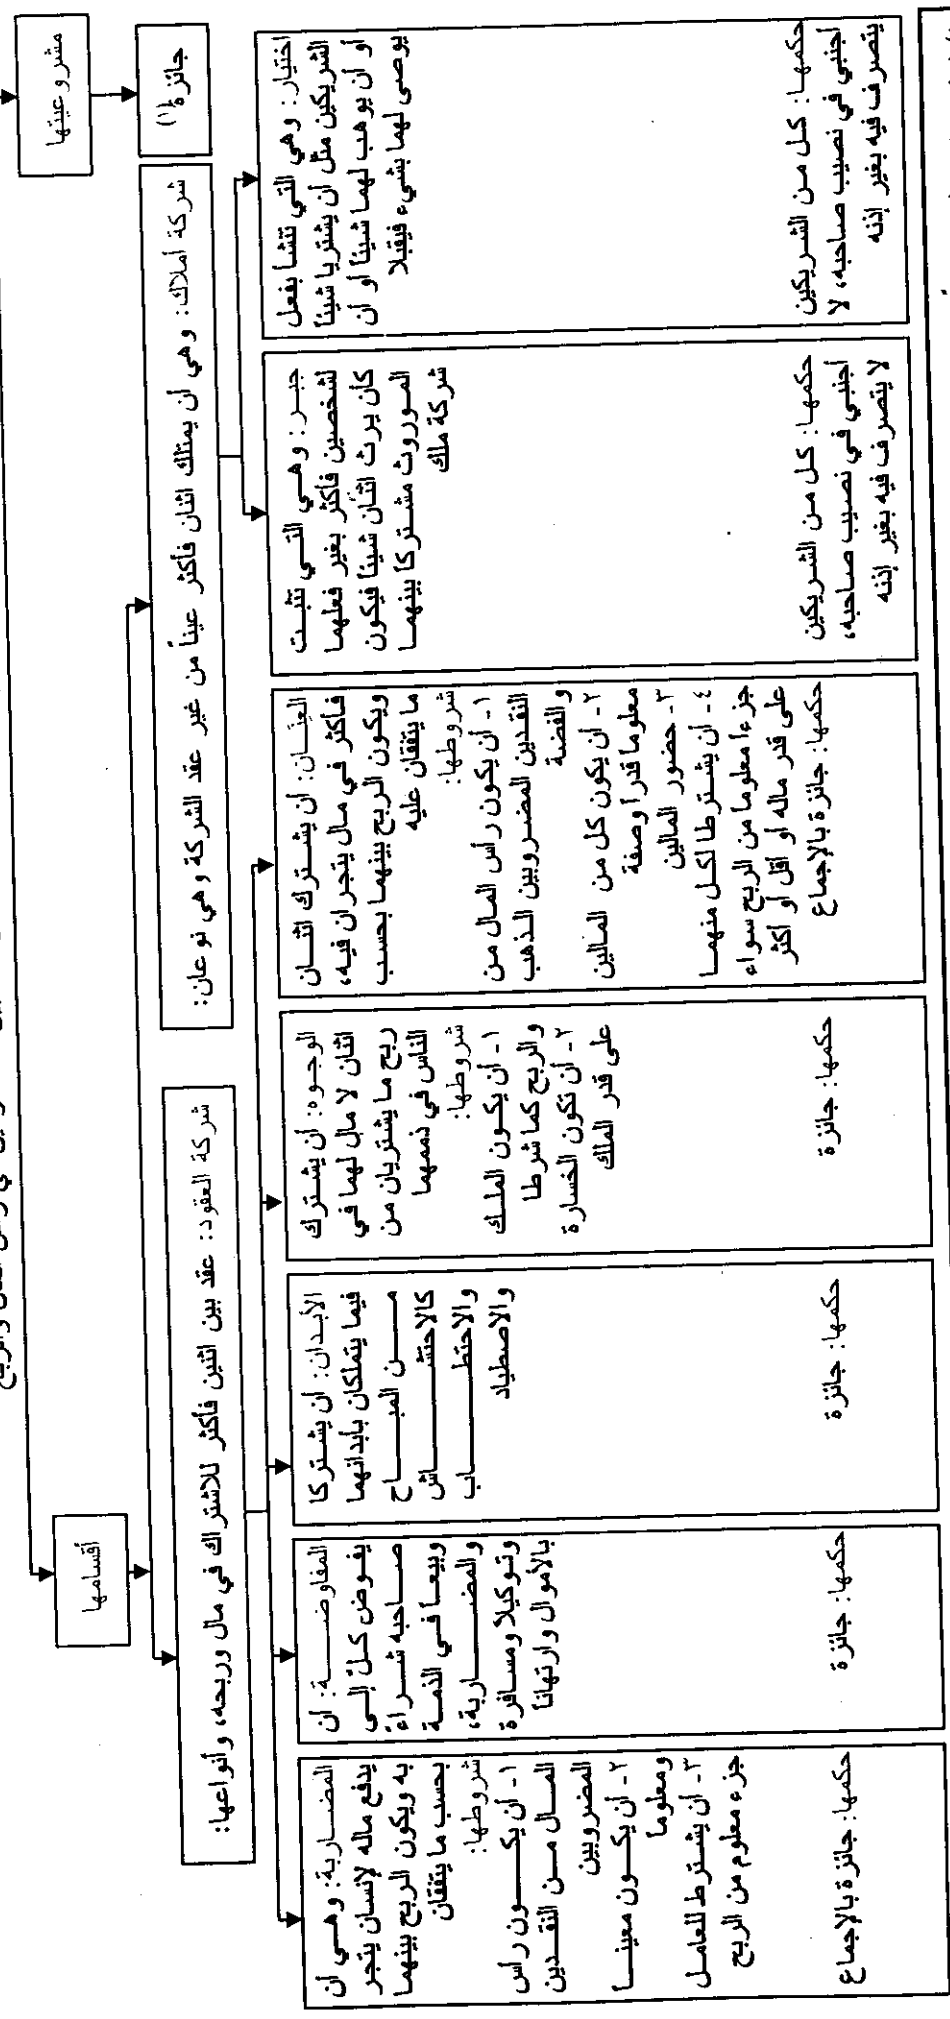 مشروعيتها
جائزة (١)
أقسامها
شركة أملاك: وهي أن يمتلك اثنان فأكثر عيناً من غير عقد الشركة وهي نوعان:
اختيار: وهي التي تنشأ بفعل
الشريكين مثل أن يشتريا شيئاً
أو أن يوهب لهما شيئاً أو أن
يوصى لهما بشيء فيقبلا
حكمها: كل من الشريكين
أجنبي في نصيب صاحبه، لا
يتصرف فيه بغير إذنه
جبر: وهي التي تثبت
لشخصين فأكثر بغير فعلهما
كأن يرث اثنان شيئاً فيكون
الموروث مشتركاً بينهما
شركة ملك
حكمها: كل من الشريكين
أجنبي في نصيب صاحبه،
لا يتصرف فيه بغير إذنه
شركة العقود: عقد بين اثنين فأكثر للاشتراك في مال وربحه، وأنواعها:
العنان: أن يشترك اثنان
فأكثر في مال يتجران فيه،
ويكون الربح بينهما بحسب
ما يتفقان عليه
شروطها:
١- أن يكون رأس المال من
النقدين المضروبين الذهب
والفضة
٢- أن يكون كل من المالين
معلوما قدرا وصفة
٣- حضور المالين
٤- أن يشترطا لكل منهما
جزءا معلوما من الربح سواء
على قدر ماله أو أقل أو أكثر
حكمها: جائزة بالإجماع
الوجوه: أن يشترك
اثنان لا مال لهما في
ربح ما يشتريان من
الناس في ذممهما
شروطها:
١- أن يكون الملك
والربح كما شرطا
٢- أن تكون الخسارة
على قدر الملك
حكمها: جائزة
الأبدان: أن يشتركا
فيما يتملكان بأبدانهما
من المباح
كالاحتشاش
والاحتطاب
والاصطياد
حكمها: جائزة
المفاوضة: أن
يفوض كل إلى
صاحبه شراء
وبيعا في الذمة
والمضاربة،
وتوكيلا ومسافرة
بالأموال وارتهاناً
حكمها: جائزة
المضاربة: وهي أن
يدفع ماله لإنسان يتجر
به ويكون الربح بينهما
بحسب ما يتفقان
شروطها:
١- أن يكون رأس
المال من النقدين
المضروبين
٢- أن يكون معينا
ومعلوما
٣- أن يشترط للعامل
جزء معلوم من الربح
حكمها: جائزة بالإجماع